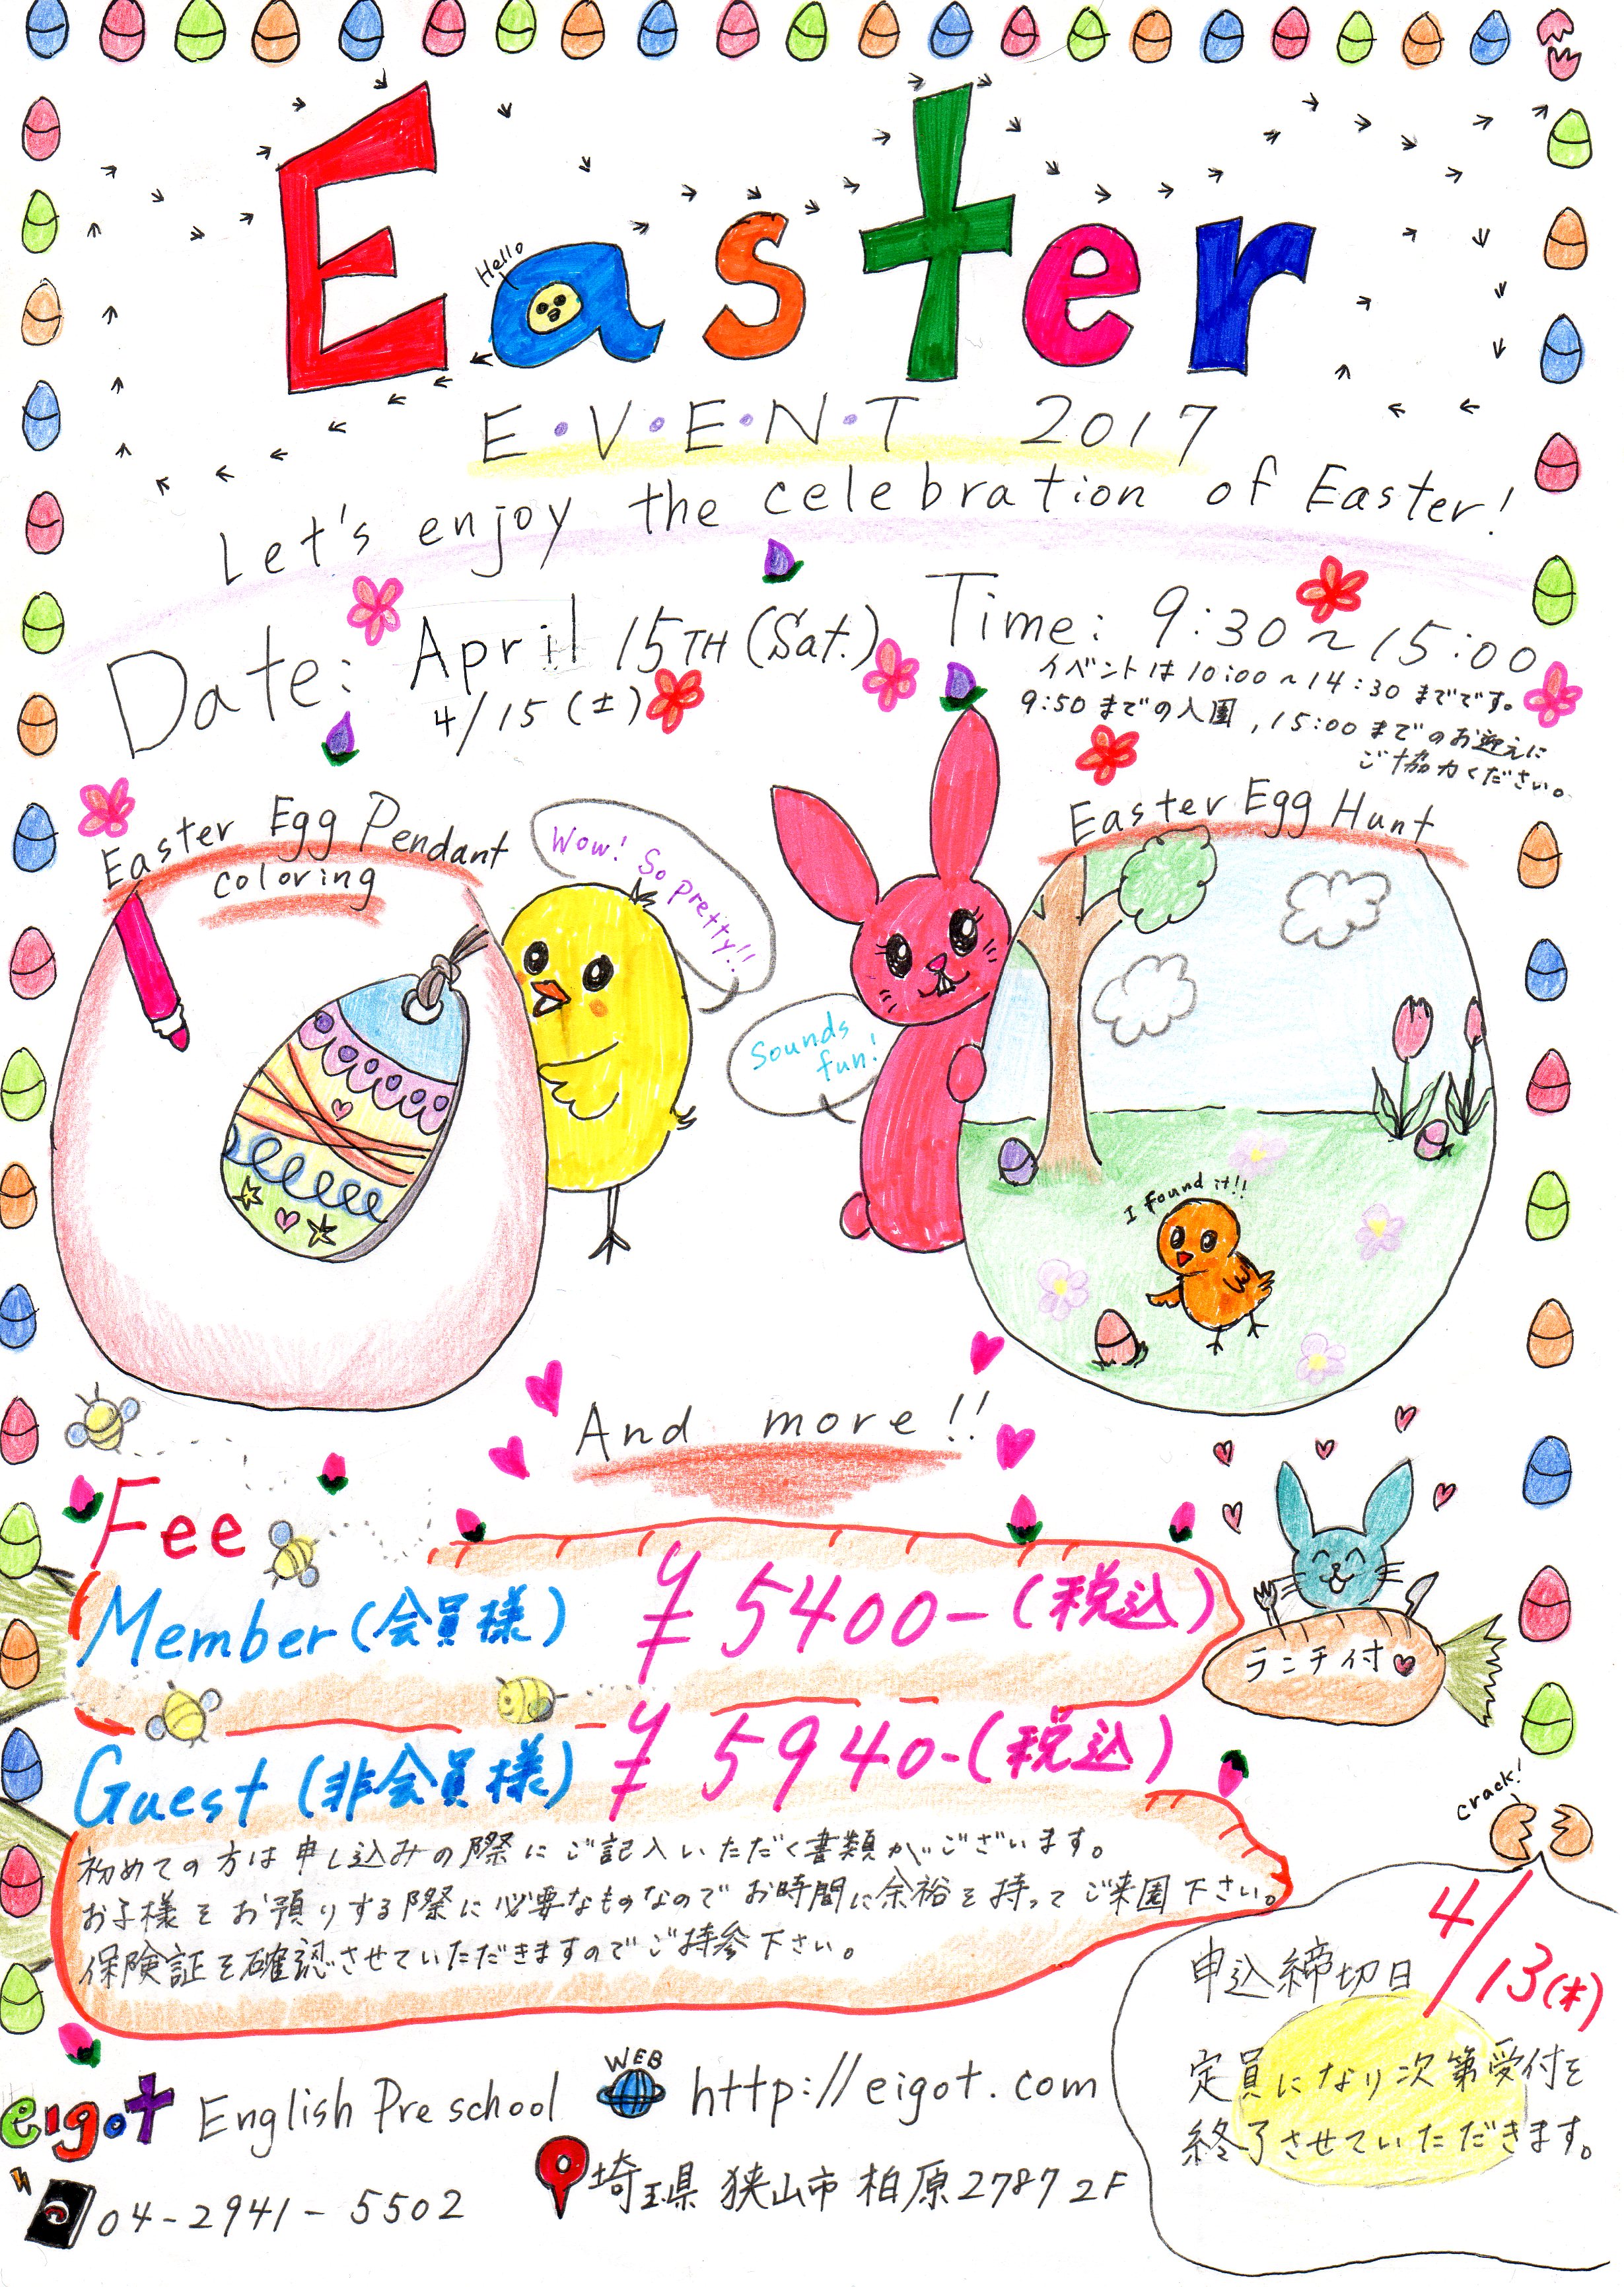 Easter
Hello
E・V・E・N・T 2017
Let's enjoy the celebration of Easter!
Date: April 15TH (Sat.)
4/15(土)
Time: 9:30~15:00
イベントは10:00~14:30までです。
9:50までの入園,15:00までのお迎えに
ご協力ください。
Easter Egg Pendant
coloring
Wow! So pretty!!
Sounds
fun!
Easter Egg Hunt
I found it!!
And more!!
Fee
Member(会員様) ¥5400-(税込)
ランチ付
Guest(非会員様) ¥5940-(税込)
初めての方は申し込みの際にご記入いただく書類がございます。
お子様をお預りする際に必要なものなのでお時間に余裕を持ってご来園下さい。
保険証を確認させていただきますのでご持参下さい。
crack!
申込締切日 4/13(木)
定員になり次第受付を
終了させていただきます。
eigot English Preschool
WEB
http://eigot.com
04-2941-5502
埼玉県狭山市柏原2787 2F